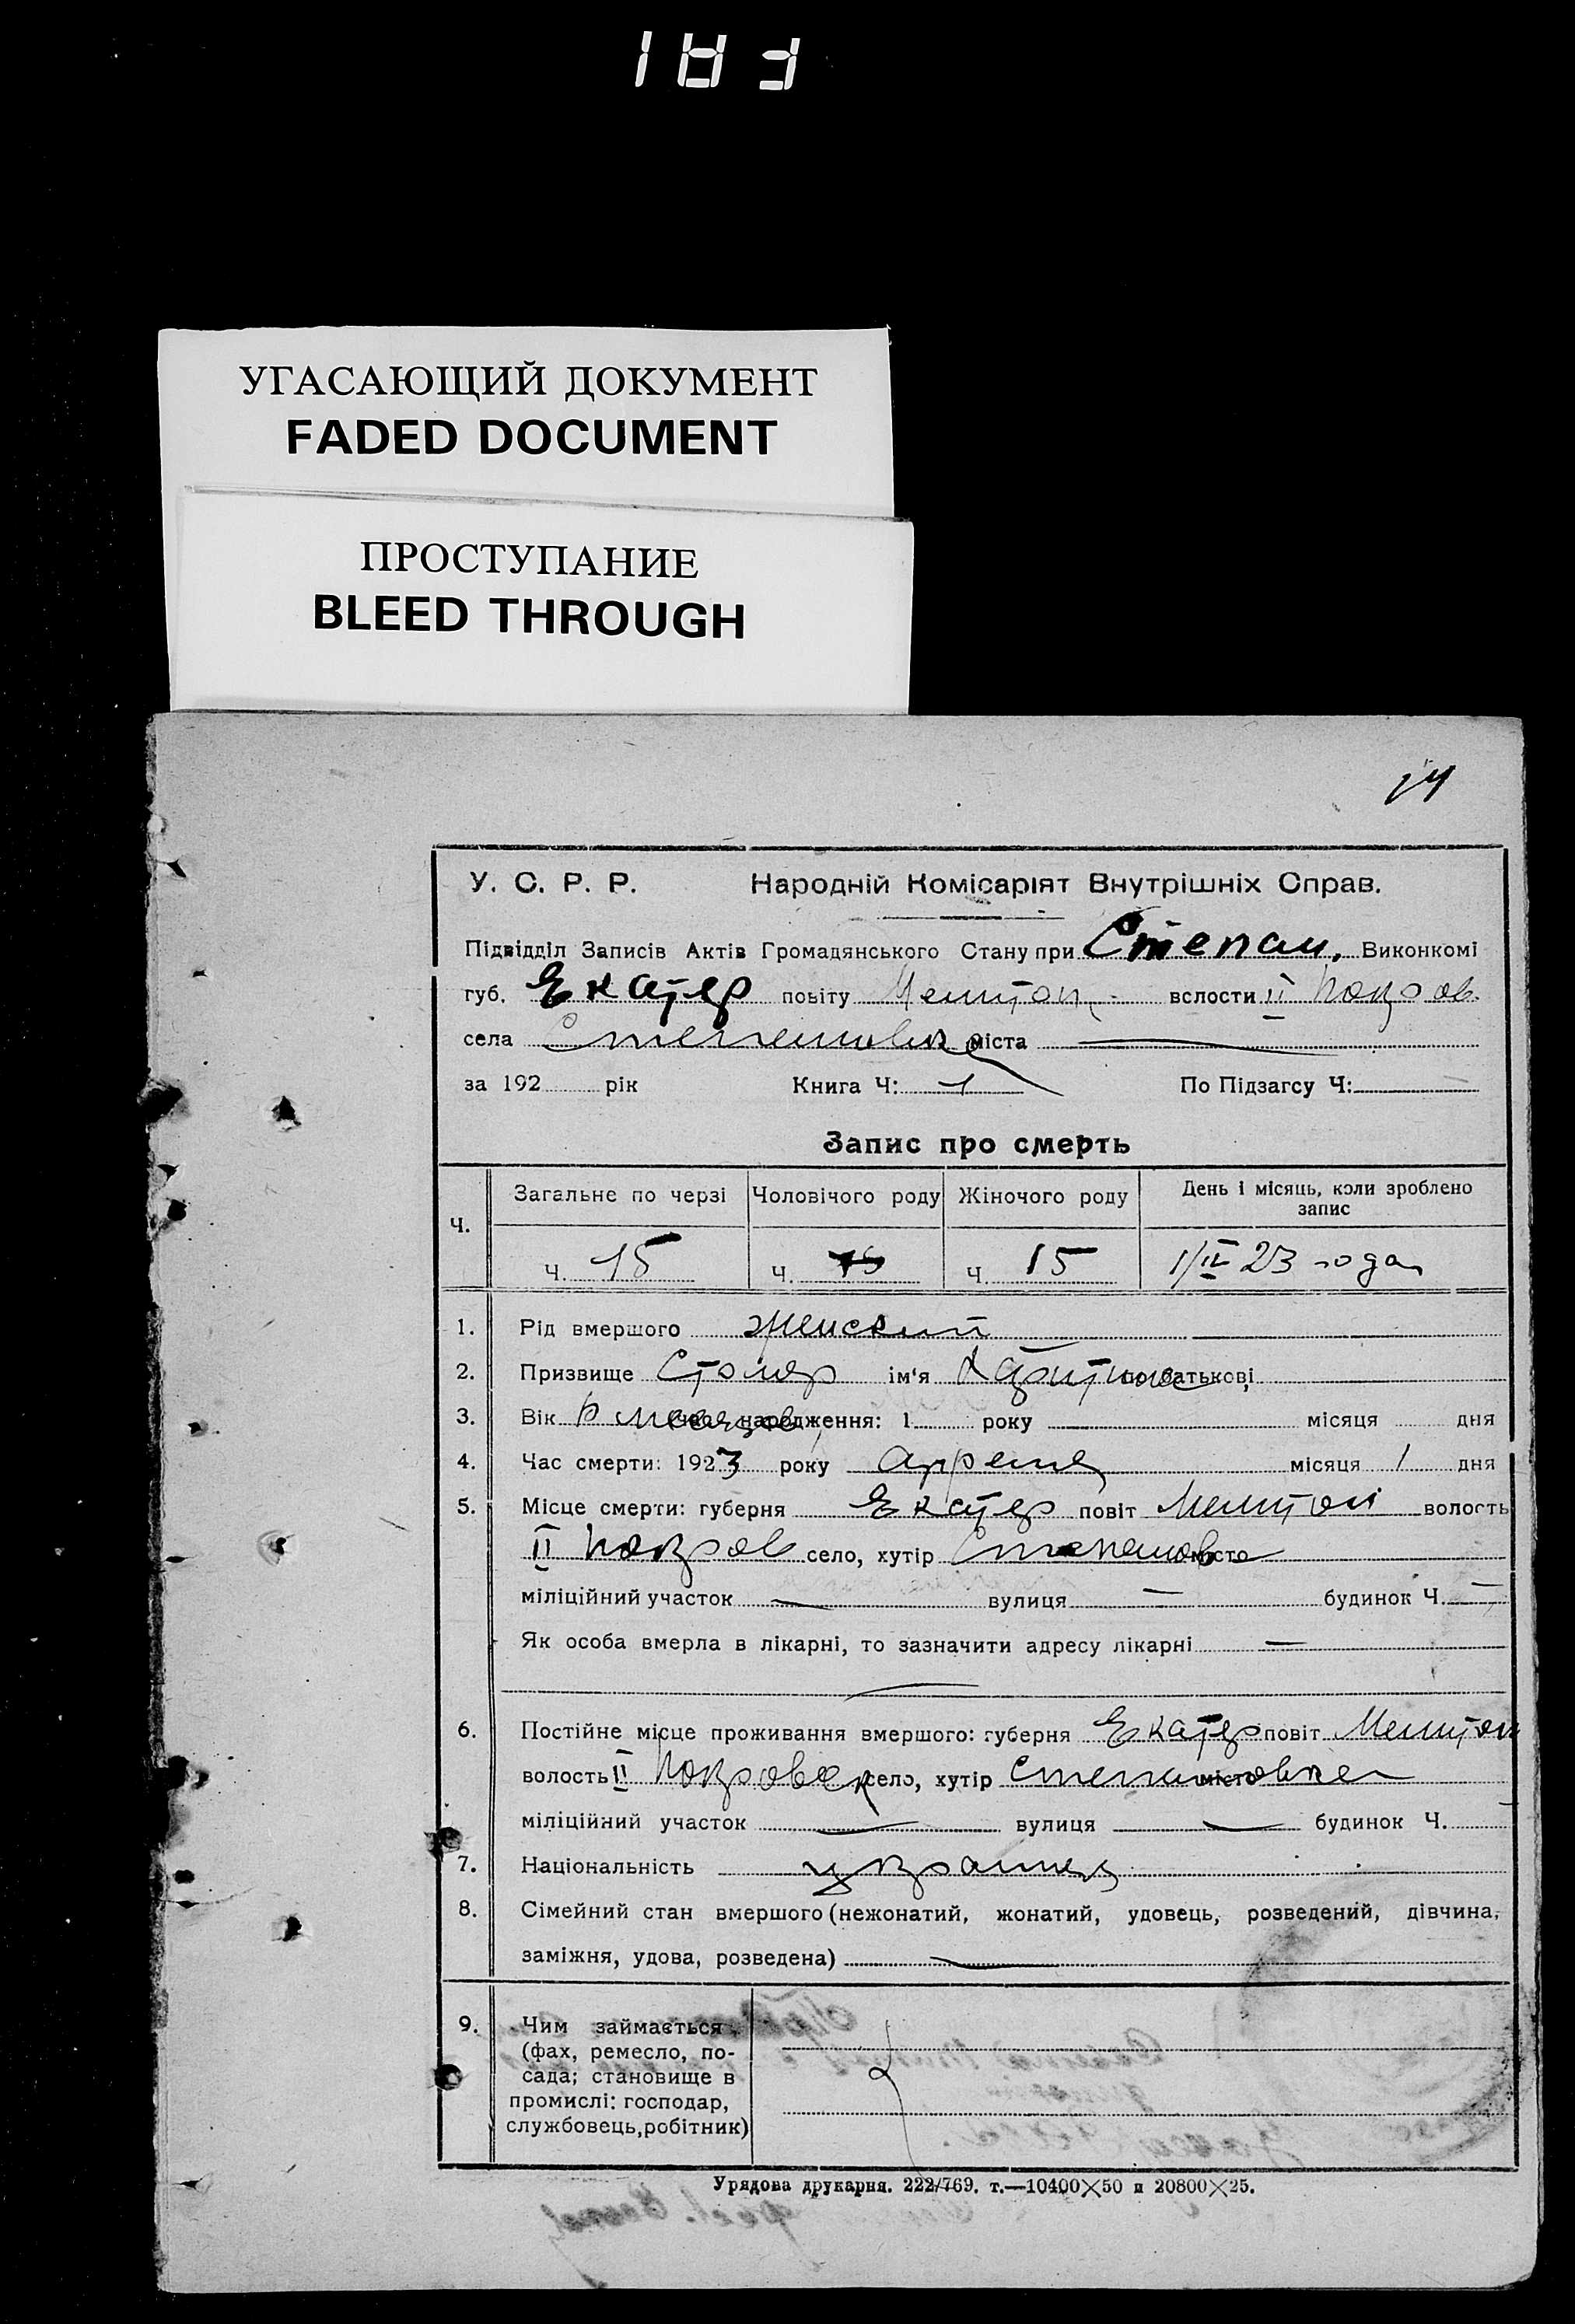 183
УГАСАЮЩИЙ ДОКУМЕНТ
FADED DOCUMENT
ПРОСТУПАНИЕ
BLEED THROUGH
14
У. С. Р. Р. Народній Комісаріят Внутрішніх Справ.
Підвідділ Записів Актів Громадянського Стану при Степан. Виконкомі
губ. Екатер повіту Мелитоп. вслости II Покров.
села Степановка міста —
за 192 рік Книга Ч: 1 По Підзагсу Ч:
Запис про смерть
Ч. Загальне по черзі Чоловічого роду Жіночого роду День і місяць, коли зроблено запис
Ч. 15 Ч. 15 Ч. 15 1/IV 23 года
1. Рід вмершого женский
2. Призвище Столяр ім'я по батькові
3. Вік месяцев час народження: 1 року місяця дня
4. Час смерти: 1923 року апреля місяця 1 дня
5. Місце смерти: губерня Екатер повіт Мелитоп волость
II Покров село, хутір Степановка місто
міліційний участок — вулиця — будинок Ч. —
Як особа вмерла в лікарні, то зазначити адресу лікарні —
6. Постійне місце проживання вмершого: губерня Екатер повіт Мелитоп
волость II Покровск село, хутір Степановка місто
міліційний участок — вулиця — будинок Ч.
7. Національність
8. Сімейний стан вмершого (нежонатий, жонатий, удовець, розведений, дівчина,
заміжня, удова, розведена) —
9. Чим займається
(фах, ремесло, по-
сада; становище в
промислі: господар,
службовець, робітник)
Урядова друкарня. 222/769. т.—10400×50 и 20800×25.